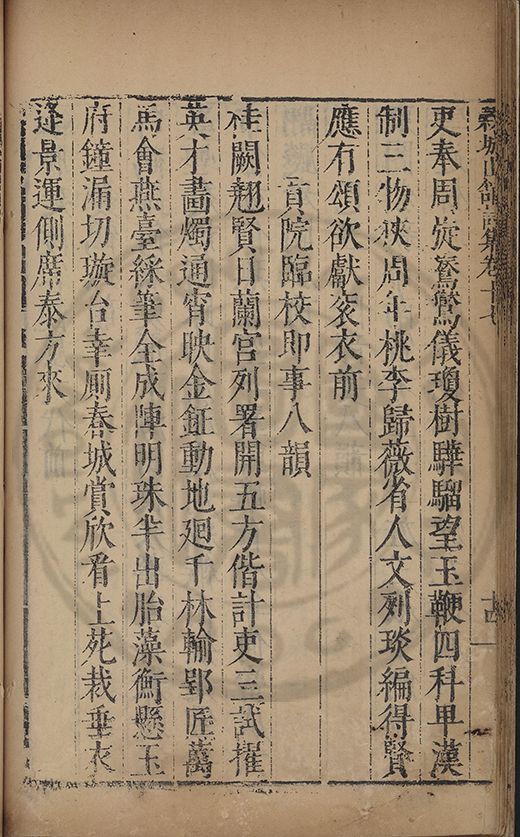 吏奉周旋鴛鷺儀瓊樹驊騮望玉鞭四科甲漢
制三物狹周年桃李歸薇省人文列琰編得賢
應有頌欲獻袞衣前
貢院臨校即事八韻
桂闕翹賢日蘭宮列署開五方偕計吏三試擢
英才畫燭通宵映金鉦動地廻千林輸郢匠萬
馬會燕臺綵筆全成陣明珠半出胎藻衡懸玉
府鐘漏切璇台幸廁春城賞欣看上苑栽垂衣
逢景運側席泰方來